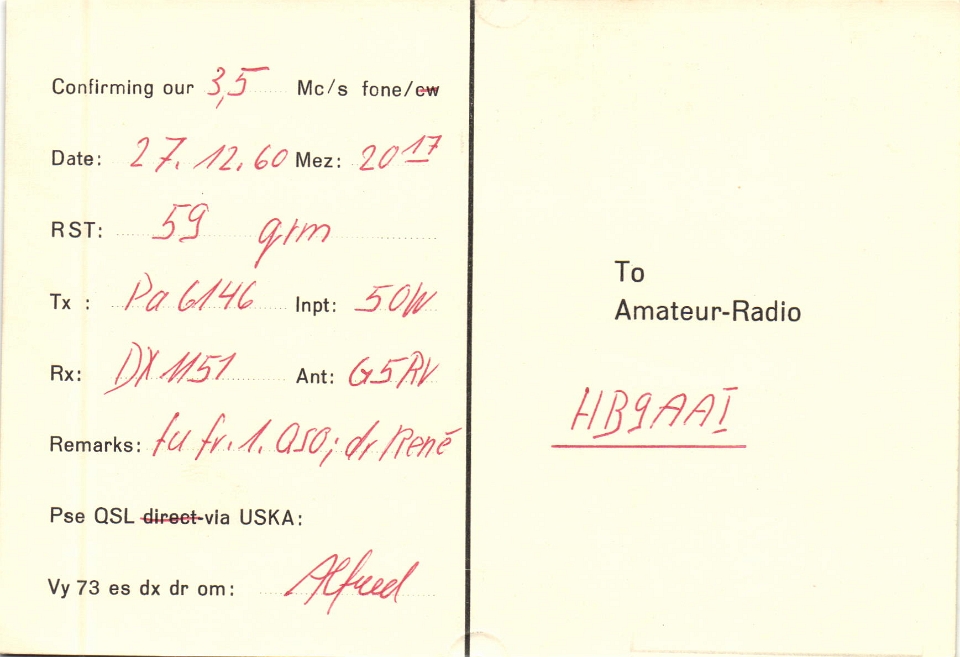 Confirming our 3,5 Mc/s fone/cw
Date: 27.12.60 Mez: 20 17
RST: 59 qrm
Tx : Pa 6146 Inpt: 50W
Rx: DX 1151 Ant: G5RV
Remarks: tu fr. 1. QSO; dr René
Pse QSL direct-via USKA:
Vy 73 es dx dr om: Alfred
To
Amateur-Radio
HB9AAI